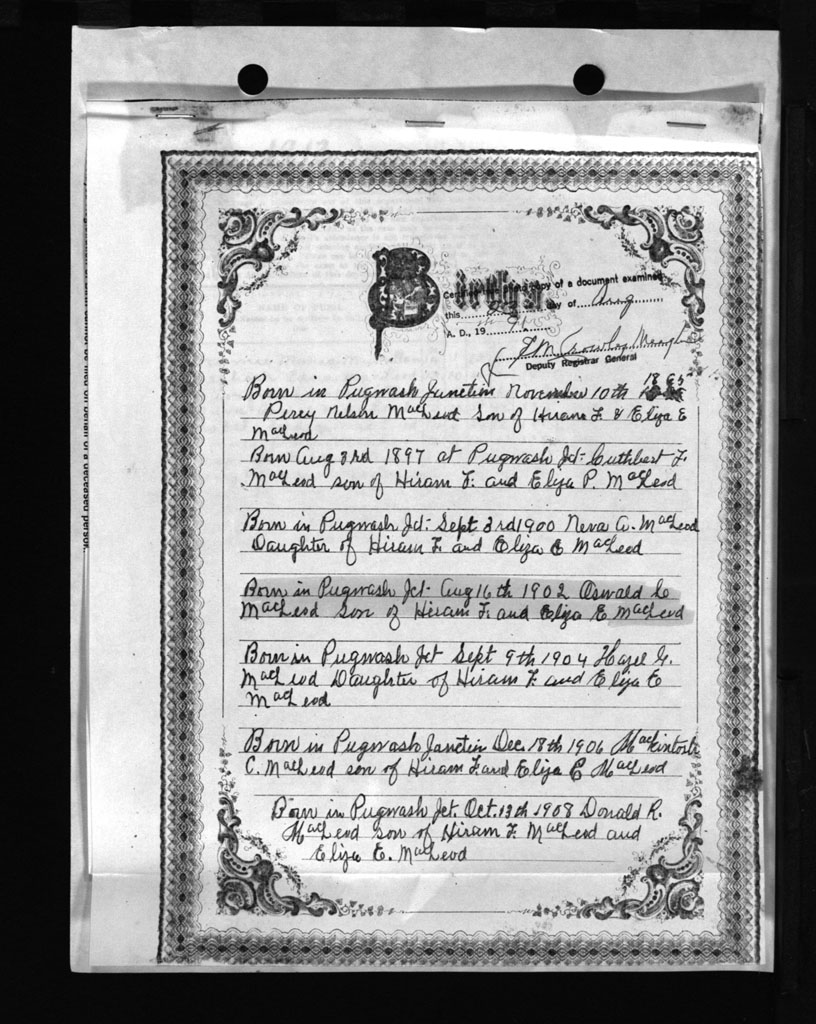 Births
Certified to be a true copy of a document examined
this day of Aug
A. D., 19 91
Deputy Registrar General
Born in Pugwash Junction November 10th 1895
Percy Nelson MacLeod Son of Hiram F. & Eliza E
MacLeod
Born Aug 3rd 1897 at Pugwash Jct- Cuthbert F.
MacLeod son of Hiram F. and Eliza P. MacLeod
Born in Pugwash Jct- Sept 3rd 1900 Neva A. MacLeod
Daughter of Hiram F. and Eliza E MacLeod
Born in Pugwash Jct- Aug 16th 1902 Oswald C
MacLeod son of Hiram F. and Eliza E MacLeod
Born in Pugwash Jct Sept 9th 1904 Hazel G.
MacLeod Daughter of Hiram F. and Eliza E
MacLeod
Born in Pugwash Junction Dec. 18th 1906 MacKintosh
C. MacLeod son of Hiram F. and Eliza E MacLeod
Born in Pugwash Jct. Oct. 13th 1908 Donald R.
MacLeod son of Hiram F. MacLeod and
Eliza E. MacLeod
cannot be filed on behalf of a deceased person.